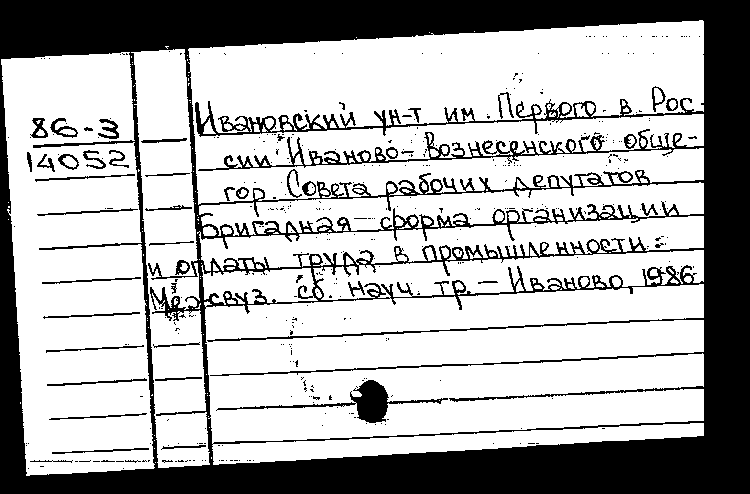 86-3
14052
Ивановский ун-т им. Первого в Рос-
сии Иваново-Вознесенского обще-
гор. Совета рабочих депутатов
Бригадная форма организации
и оплаты труда в промышленности:
Межвуз. сб. науч. тр. - Иваново, 1986.